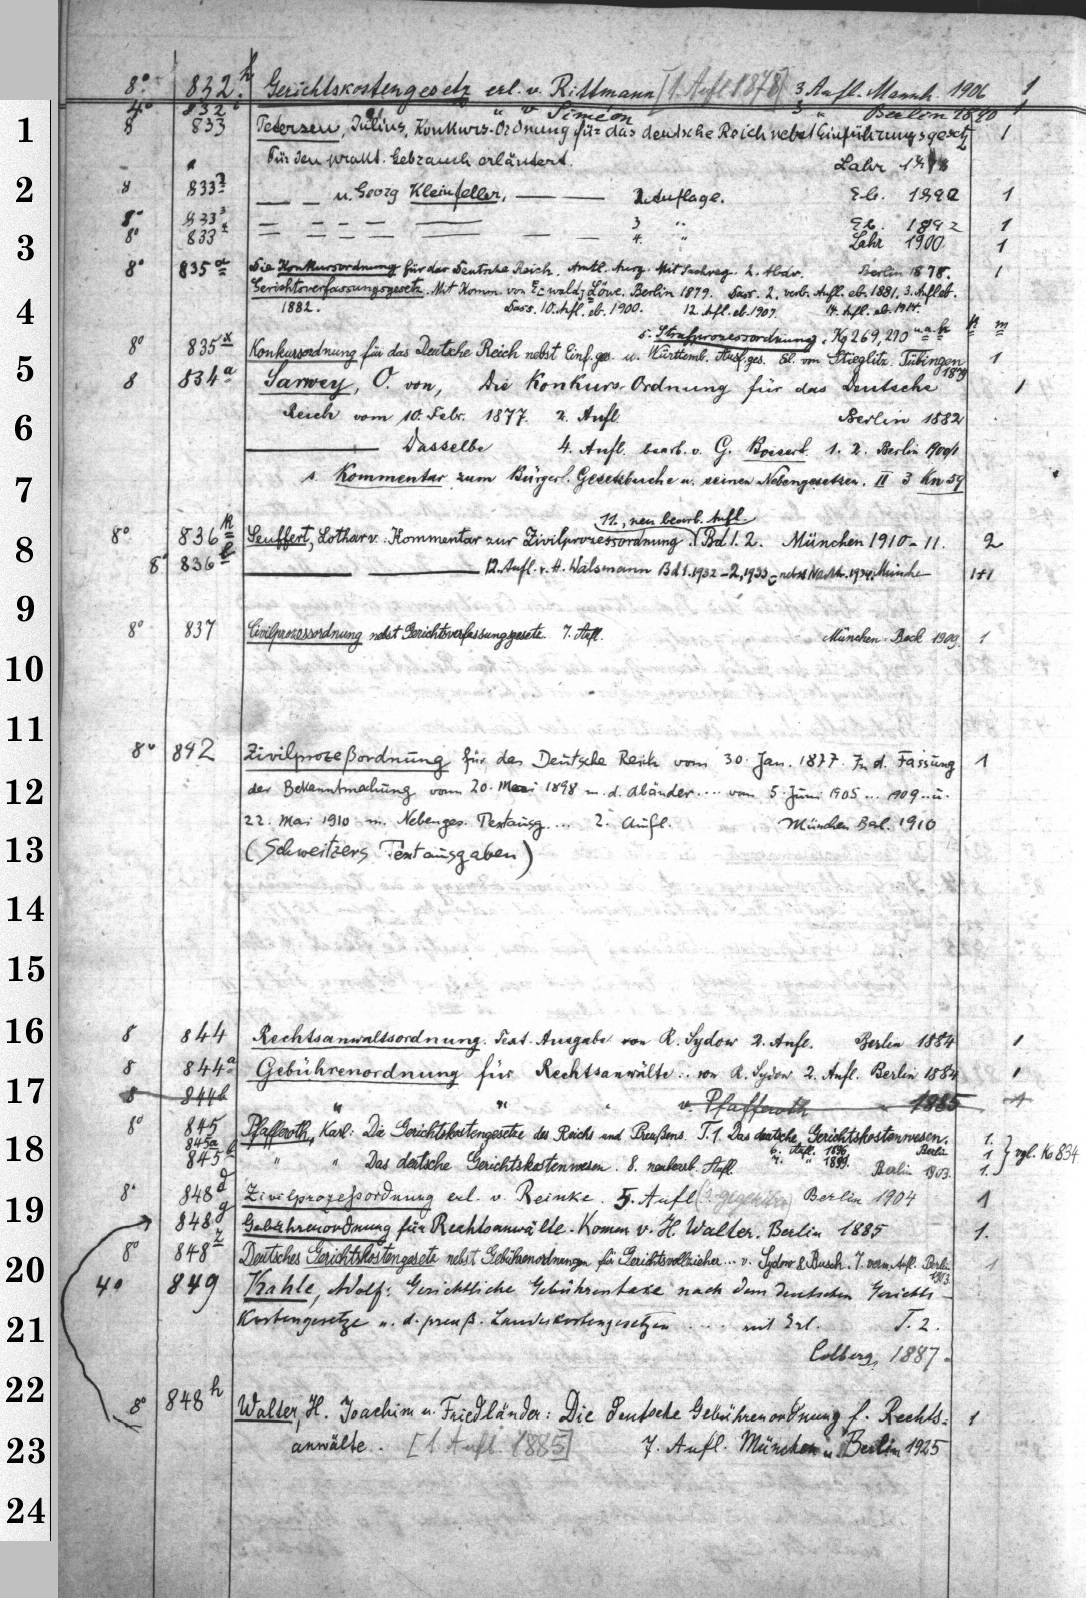 8° 832 h Gerichtskostengesetz erl. v. Rittmann [1. Aufl 1878] 3. Aufl. Mannh. 1906 1
4° 832 i " v. Siméon Berlin 1
1 8 833 Petersen, Julius, Konkurs-Ordnung für das deutsche Reich nebst Einführungsgesetz 1
Für den prakt. Gebrauch erläutert. Lahr
2 8 833 2 — — u. Georg Kleinfeller, — — 2. Auflage. Eb. 1890 1
8° 833 3 — — — — — 3 " Eb. 1892 1
3 8° 833 — — — — — 4. " Lahr 1900 1
8° 835 a Die Konkursordnung für das Deutsche Reich. Amtl. Ausg. Mit Sachreg. 2. Abdr. Berlin 1878. 1
Gerichtsverfassungsgesetz. Mit Komm. von Löwe. Berlin 1879. Dass. 2. verb. Aufl. eb. 1881. 3. Aufl eb.
4 1882. Dass. 10. Aufl. eb. 1900. 12. Afl. eb. 1907. 14. Afl. eb. 1914.
s. Strafprozessordnung. Kg 269, 270
8° 835 x Konkursordnung für das Deutsche Reich nebst Einf.ges. u. Württemb. Ausf.ges. von Stieglitz. Tübingen 1879 1
5 8 834 a Sarwey, O. von, Die Konkurs-Ordnung für das Deutsche 1
6 Reich vom 10. Febr. 1877. 2. Aufl. Berlin 1882
— Dasselbe 4. Aufl. bearb. v. G. Bossert. 1. 2. Berlin 1900/1
7 s. Kommentar zum Bürgerl. Gesetzbuche u. seinen Nebengesetzen. II 3 Kn 59
11., neu bearb. Aufl.
8 8° 836 k Seuffert, Lothar v.: Kommentar zur Zivilprozessordnung. Bd 1. 2. München 1910-11. 2
8° 836 l — — 12. Aufl. v. H. Walsmann Bd 1. 1932 - 2, 1933 nebst Nachtr. 1934. München 1+1
9 8° 837 Civilprozessordnung nebst Gerichtsverfassungsgesetz. 7. Aufl. München: Beck 1909. 1
10
11 8° 842 Zivilprozeßordnung für das Deutsche Reich vom 30. Jan. 1877. In d. Fassung 1
12 der Bekanntmachung vom 20. Mai 1898 m. d. Abänder.... vom 5. Juni 1905 ... 1909 .. u.
22. Mai 1910 m. Nebenges. Textausg.... 2. Aufl. München Berl. 1910
13 (Schweitzers Textausgaben)
14
15
16 8 844 Rechtsanwaltsordnung. Text-Ausgabe von R. Sydow 2. Aufl. Berlin 1884 1
8 844 a Gebührenordnung für Rechtsanwälte .. von R. Sydow 2. Aufl. Berlin 1884 1
17 8 844b " " v. Pfafferoth " 1885 1
8° 845 Pfafferoth, Karl: Die Gerichtskostengesetze des Reichs und Preußens. T. 1. Das deutsche Gerichtskostenwesen. 1.
18 845a 6. Aufl. 1896. Berlin 1 } vgl. Ko 834
845 b " " Das deutsche Gerichtskostenwesen. 8. neubearb. Aufl. 7. " 1899. Berlin 1903. 1.
8° 848 d Zivilprozeßordnung erl. v. Reinke. 5. Aufl Berlin 1904 1
19 848 g Gebührenordnung für Rechtsanwälte. Komm v. H. Walter. Berlin 1885 1.
20 8° 848 z Deutsches Gerichtskostengesetz nebst Gebührenordnungen für Gerichtsvollzieher... v. Sydow & Busch. 7. verm Aufl. Berlin 1903. 1
4° 849 Kahle, Adolf: Gerichtliche Gebührentaxe nach dem deutschen Gerichts-
21 kostengesetze u. d. preuß. Landeskostengesetzen .... mit Erl. T. 2.
Colberg, 1887.
22 8° 848 h Walter, H. Joachim u. Friedländer: Die Deutsche Gebührenordnung f. Rechts- 1
23 anwälte. [1. Aufl. 1885] 7. Aufl. München u. Berlin 1925
24